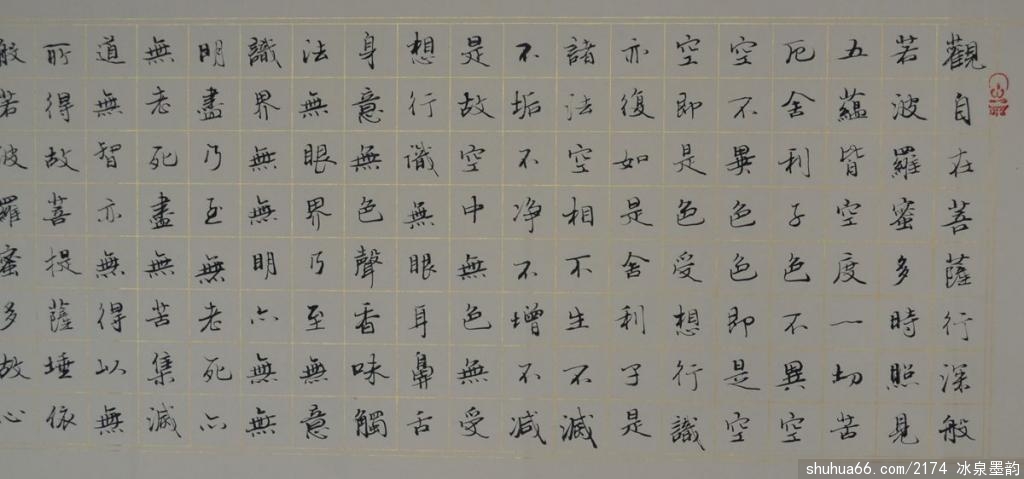 觀自在菩薩行深般
若波羅蜜多時照見
五蘊皆空度一切苦
厄舍利子色不異空
空不異色色即是空
空即是色受想行識
亦復如是舍利子是
諸法空相不生不滅
不垢不净不增不减
是故空中無色無受
想行識無眼耳鼻舌
身意無色聲香味觸
法無眼界乃至無意
識界無無明亦無無
明盡乃至無老死亦
無老死盡無苦集滅
道無智亦無得以無
所得故菩提薩埵依
般若波羅蜜多故心
shuhua66.com/2174 冰泉墨韵